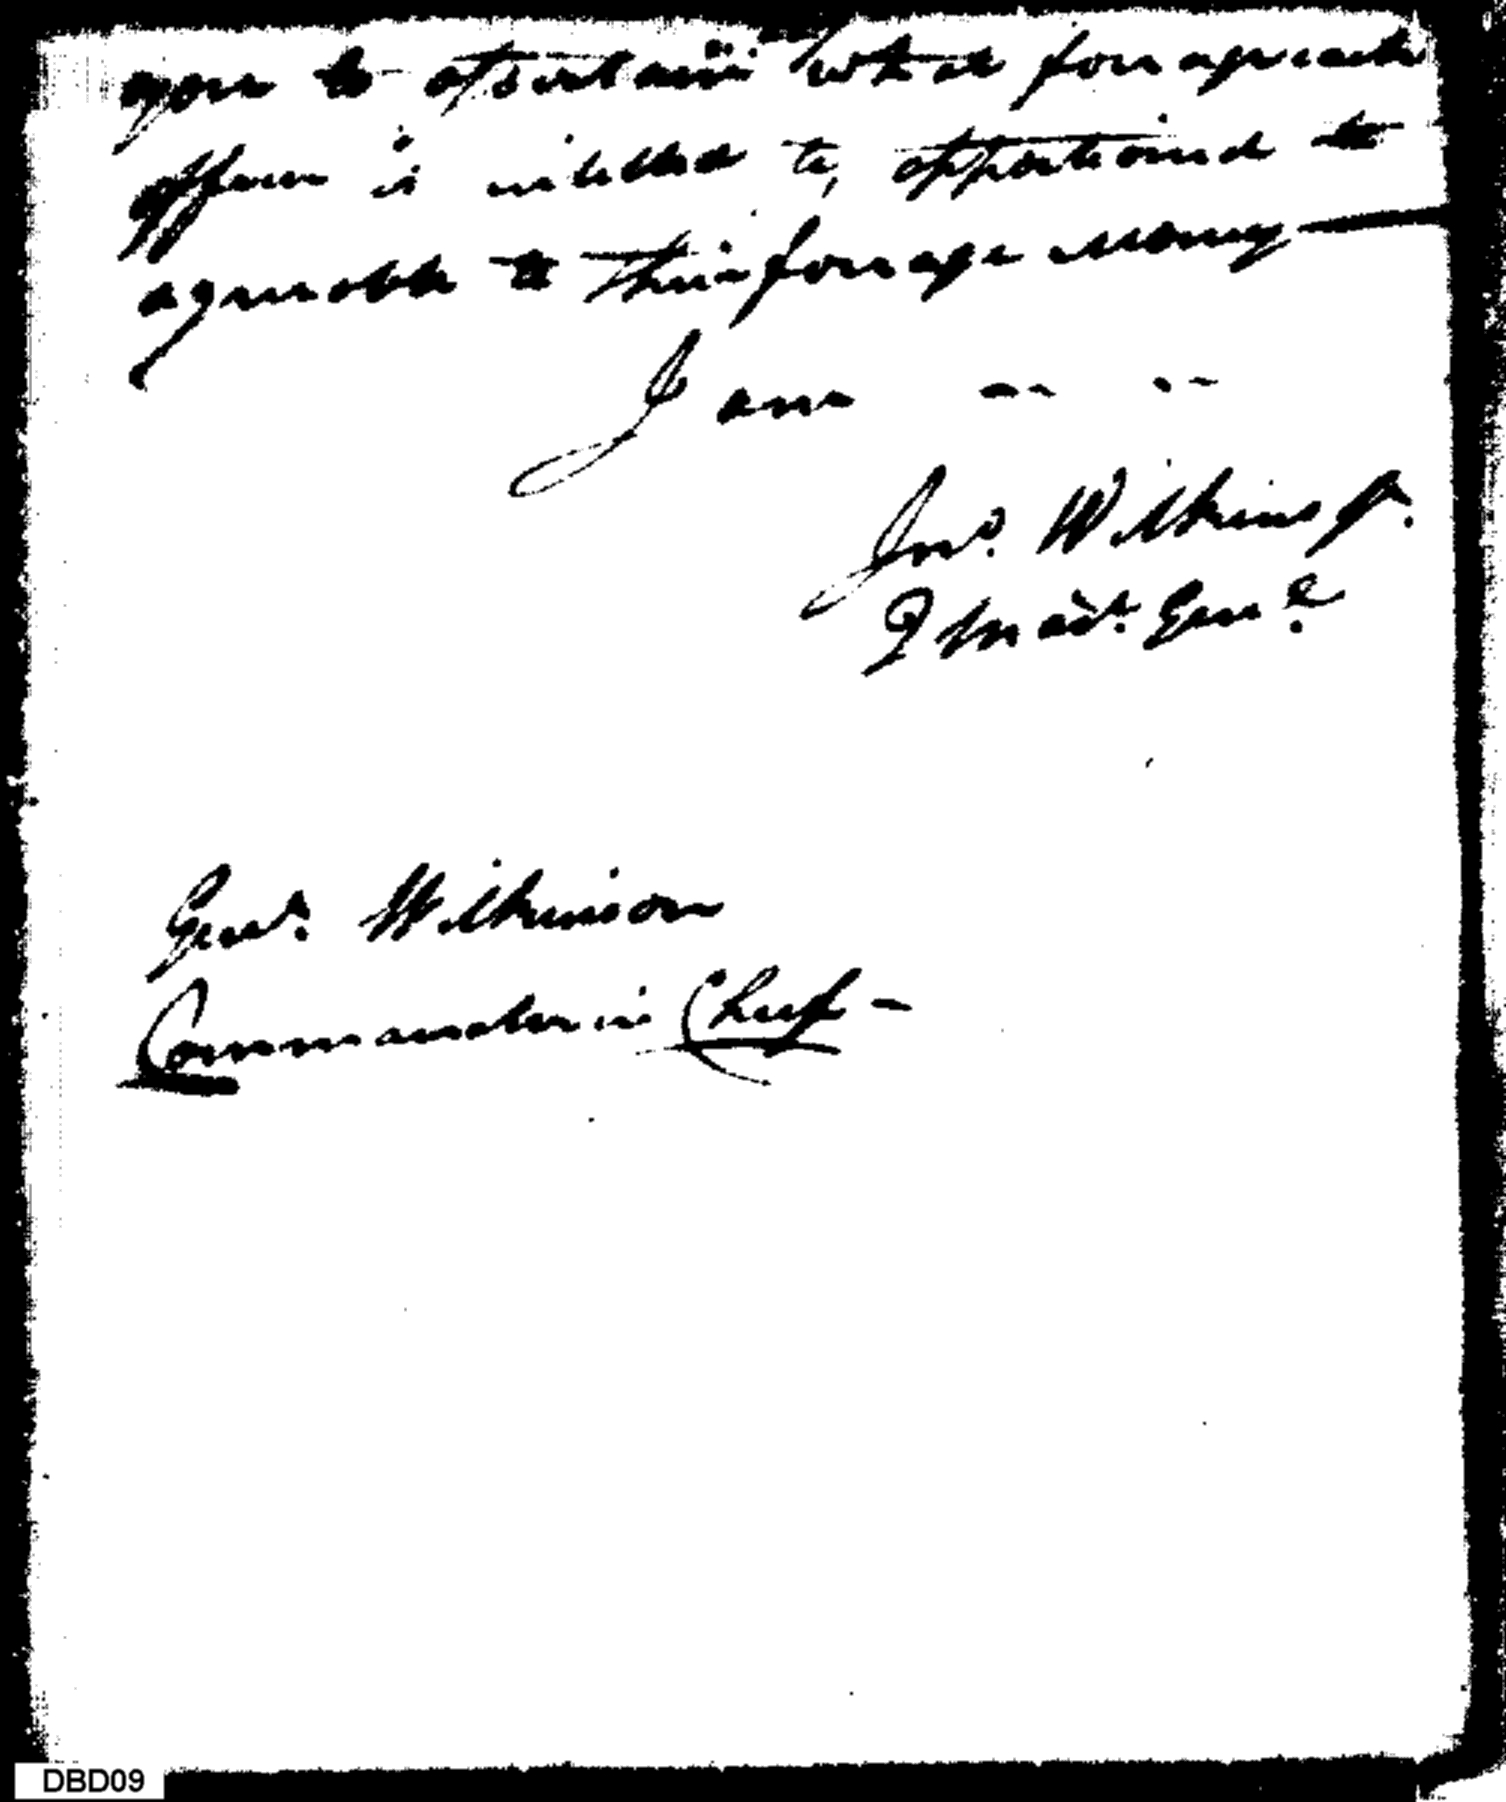 you to assertain what forrage each
officer is intitled to, apportioned to
agreeable to their forrage money
I am -- --
Jno. Wilkins Jr.
Q Mastr. Genl.
Genl. Wilkinson
Commander in Chief -
DBD09